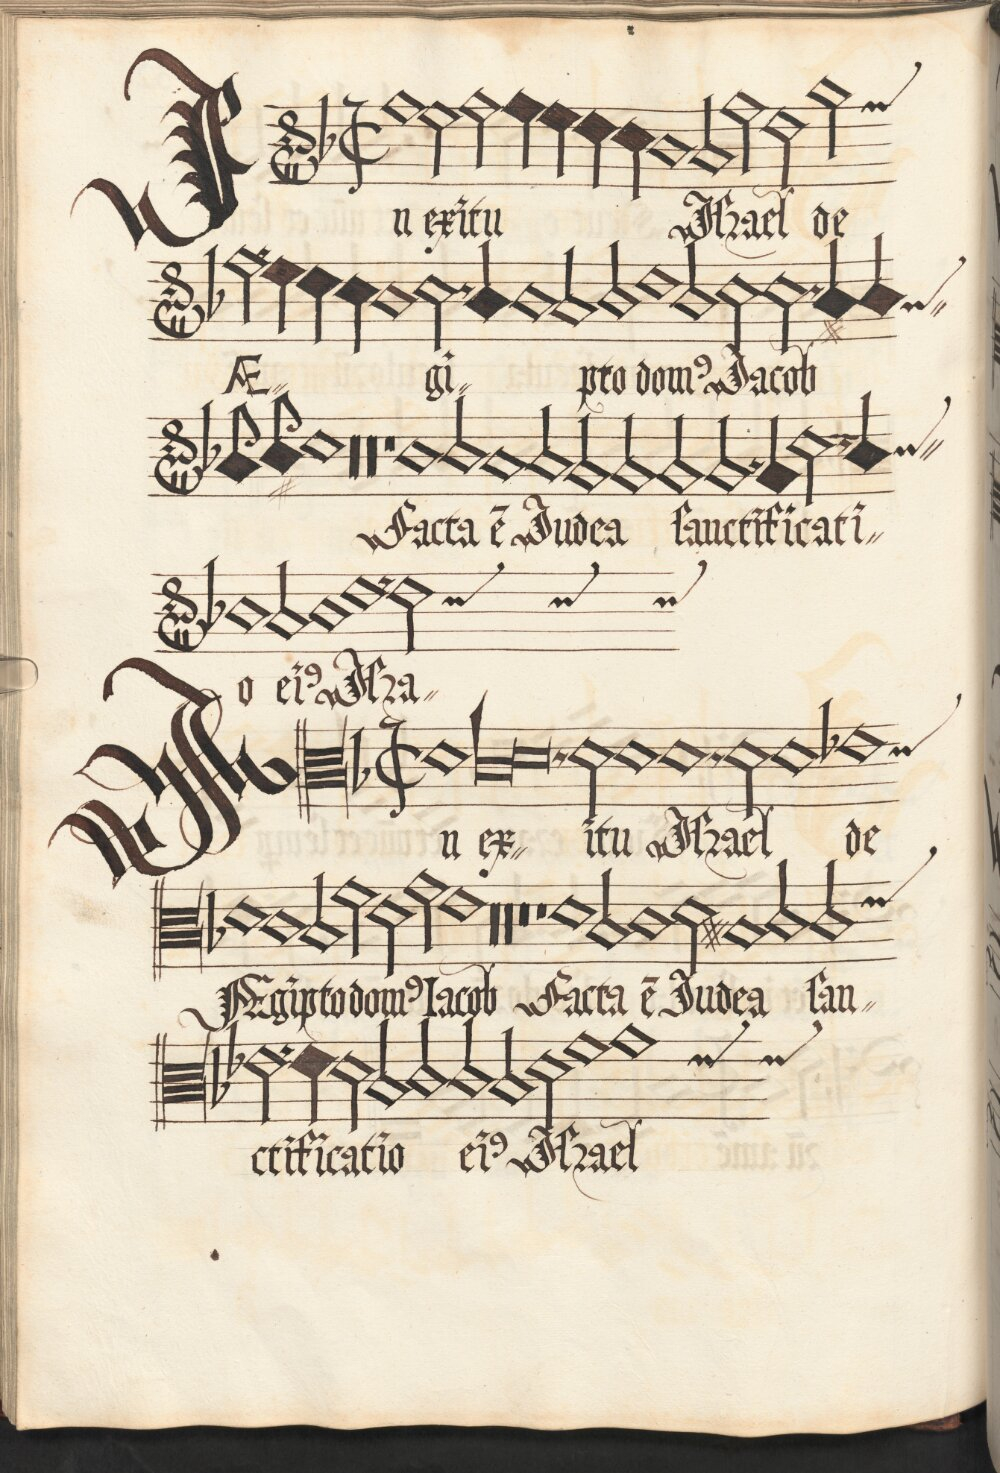 In exitu Israel de
Æ- gi- pto dom⁹ Jacob
Facta ē Judea sanctificati-
o ei⁹ Isra-
In ex- itu Israel de
Ægipto dom⁹ Iacob Facta ē Judea san-
ctificatio ei⁹ Israel